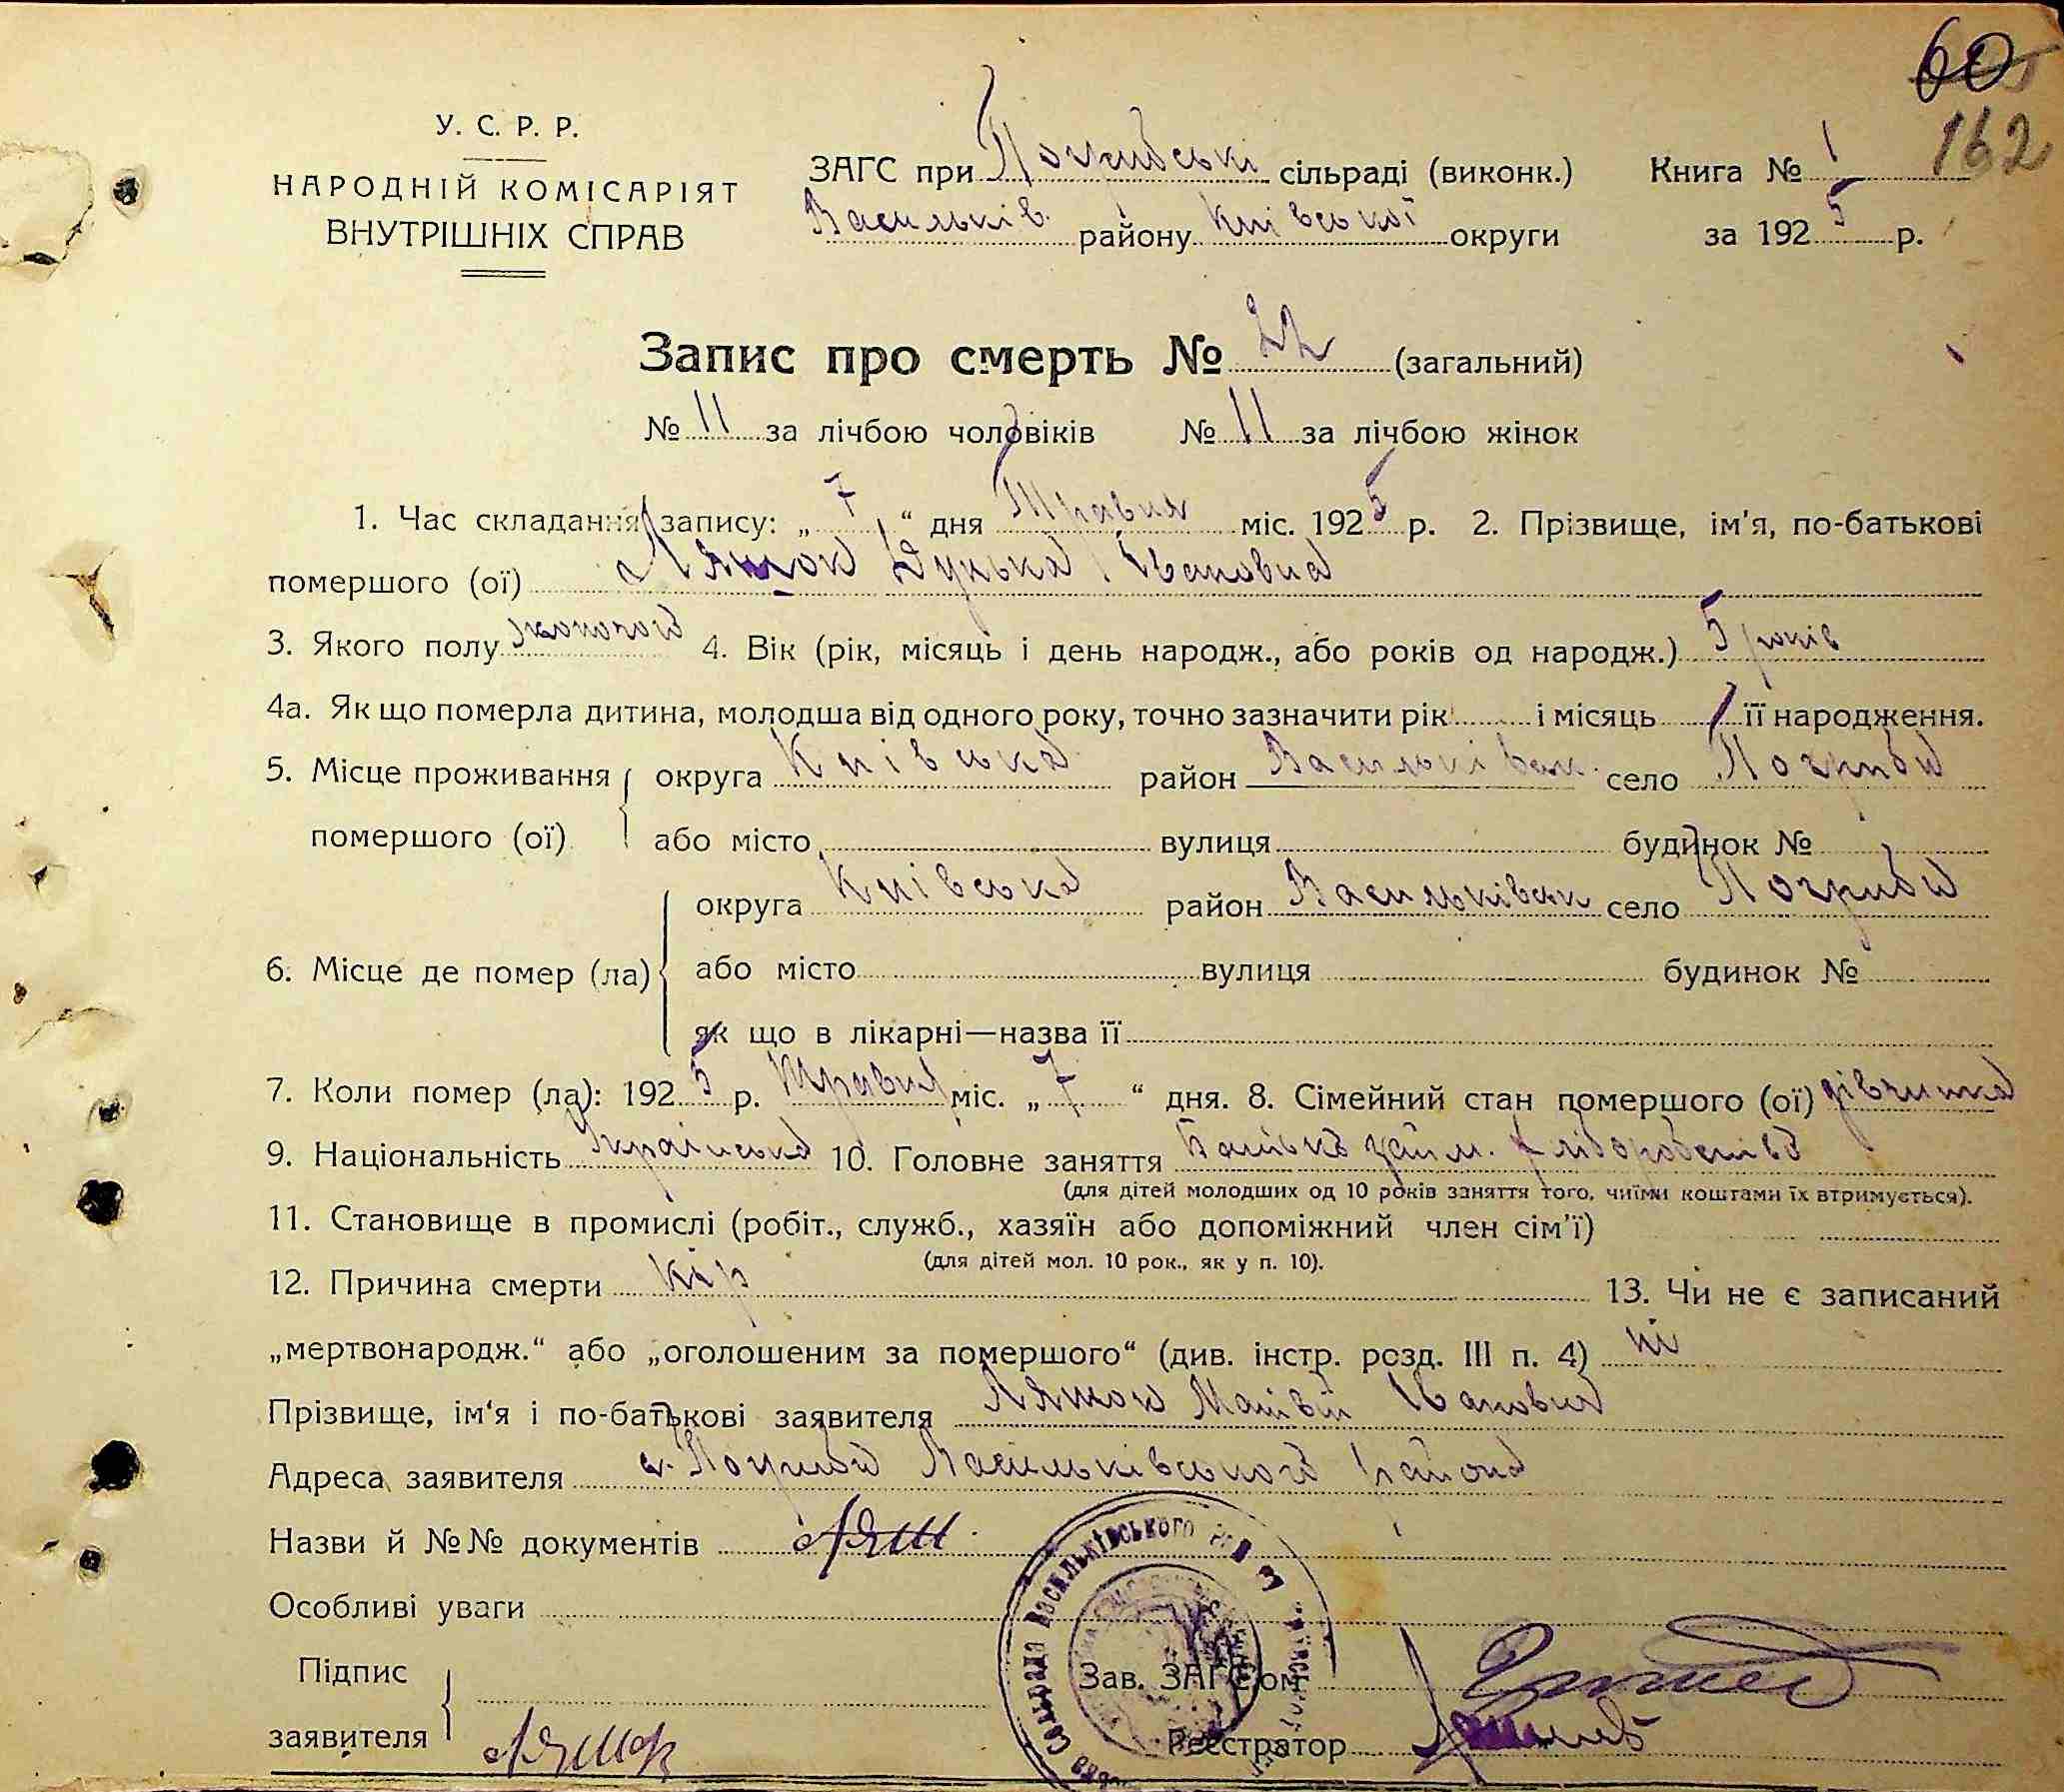 60
162
У. С. Р. Р.
НАРОДНІЙ КОМІСАРІЯТ
ВНУТРІШНІХ СПРАВ
ЗАГС при Погребській сільраді (виконк.) Книга № 1
Васильків. району Київської округи за 1925 р.
Запис про смерть № 22 (загальний)
№ 11 за лічбою чоловіків № 11 за лічбою жінок
1. Час складання запису: „ 7 “ дня Травня міс. 1925 р. 2. Прізвище, ім'я, по-батькові
помершого (ої) Ляшок Дунька Івановна
3. Якого полу жіночого 4. Вік (рік, місяць і день народж., або років од народж.) 5 років
4а. Як що померла дитина, молодша від одного року, точно зазначити рік і місяць її народження.
5. Місце проживання округа Київська район Васильківськ. село Погриби
помершого (ої) або місто вулиця будинок №
округа Київська район Васильківськ село Погриби
6. Місце де помер (ла) або місто вулиця будинок №
як що в лікарні—назва її
7. Коли помер (ла): 1925 р. Травня міс. „ 7 “ дня. 8. Сімейний стан помершого (ої) дівчинка
9. Національність Українська 10. Головне заняття Батько займ. хліборобством
(для дітей молодших од 10 років заняття того, чиїми коштами їх втримується).
11. Становище в промислі (робіт., служб., хазяїн або допоміжний член сім'ї)
(для дітей мол. 10 рок., як у п. 10).
12. Причина смерти кір 13. Чи не є записаний
„мертвонародж.“ або „оголошеним за помершого“ (див. інстр. розд. III п. 4) ні
Прізвище, ім'я і по-батькові заявителя Ляшок Матвій Іванович
Адреса заявителя с. Погриби Васильківського района
Назви й №№ документів Ляш
Особливі уваги
Підпис
заявителя Ляшок
Зав. ЗАГСом
Реєстратор
Сільрада Васильківського